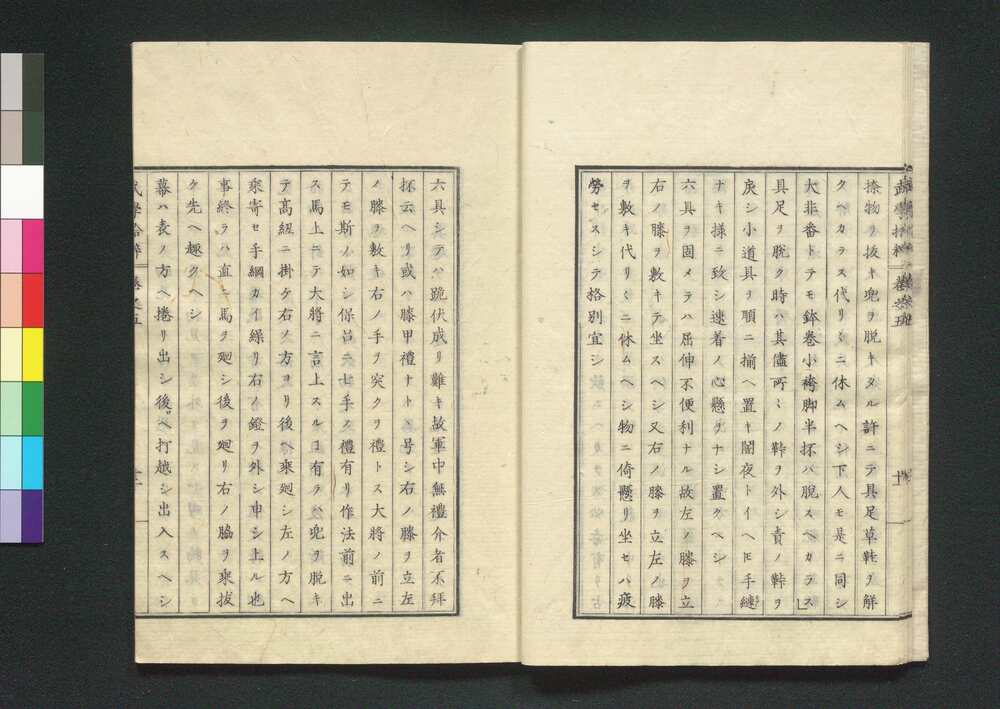 捺物リ抜キ兜ヲ脱キタル許ニテ具足草鞋ヲ解
クヘカラス代リ〳〵ニ休ムヘシ下人モ是ニ同シ
大非番トテモ鉢巻小袴脚半抔ハ脱スヘカラス
具足ヲ脱ク時ハ其儘所〻ノ鞐ヲ外シ責ノ鞐ヲ
戻シ小道具ヲ順ニ揃ヘ置キ闇夜トイヘ𪜈手縺
ナキ様ニ致シ速着ノ心懸ヲナシ置クヘシ
六具ヲ固メテハ屈伸不便利ナル故左ノ膝ヲ立
右ノ膝ヲ敷キテ坐スヘシ又右ノ膝ヲ立左ノ膝
ヲ敷キ代リ〳〵ニ休ムヘシ物ニ倚懸リ坐セハ疲
労セスシテ格別宜シ
六具シテハ跪伏成リ難キ故軍中無禮介者不拜
抔云ヘリ或ハ膝甲禮ナトヽ号シ右ノ膝ヲ立左
ノ膝ヲ敷キ右ノ手ヲ突クヲ禮トス大將ノ前ニ
テモ斯ノ如シ保呂ニハ七手ノ禮有リ作法前ニ出
ス馬上ニテ大將ニ言上スルヿ有ラハ兜ヲ脱キ
テ高紐ニ掛ケ右ノ方ヨリ後ヘ乗廻シ左ノ方ヘ
乗寄セ手綱カイ繰リ右ノ鐙ヲ外シ申シ上ル也
事終ラハ直ニ馬ヲ廻シ後ヲ廻リ右ノ脇ヲ乗拔
ケ先ヘ趣クヘシ
幕ハ表ノ方ヘ捲リ出シ後ヘ打越シ出入スヘシ